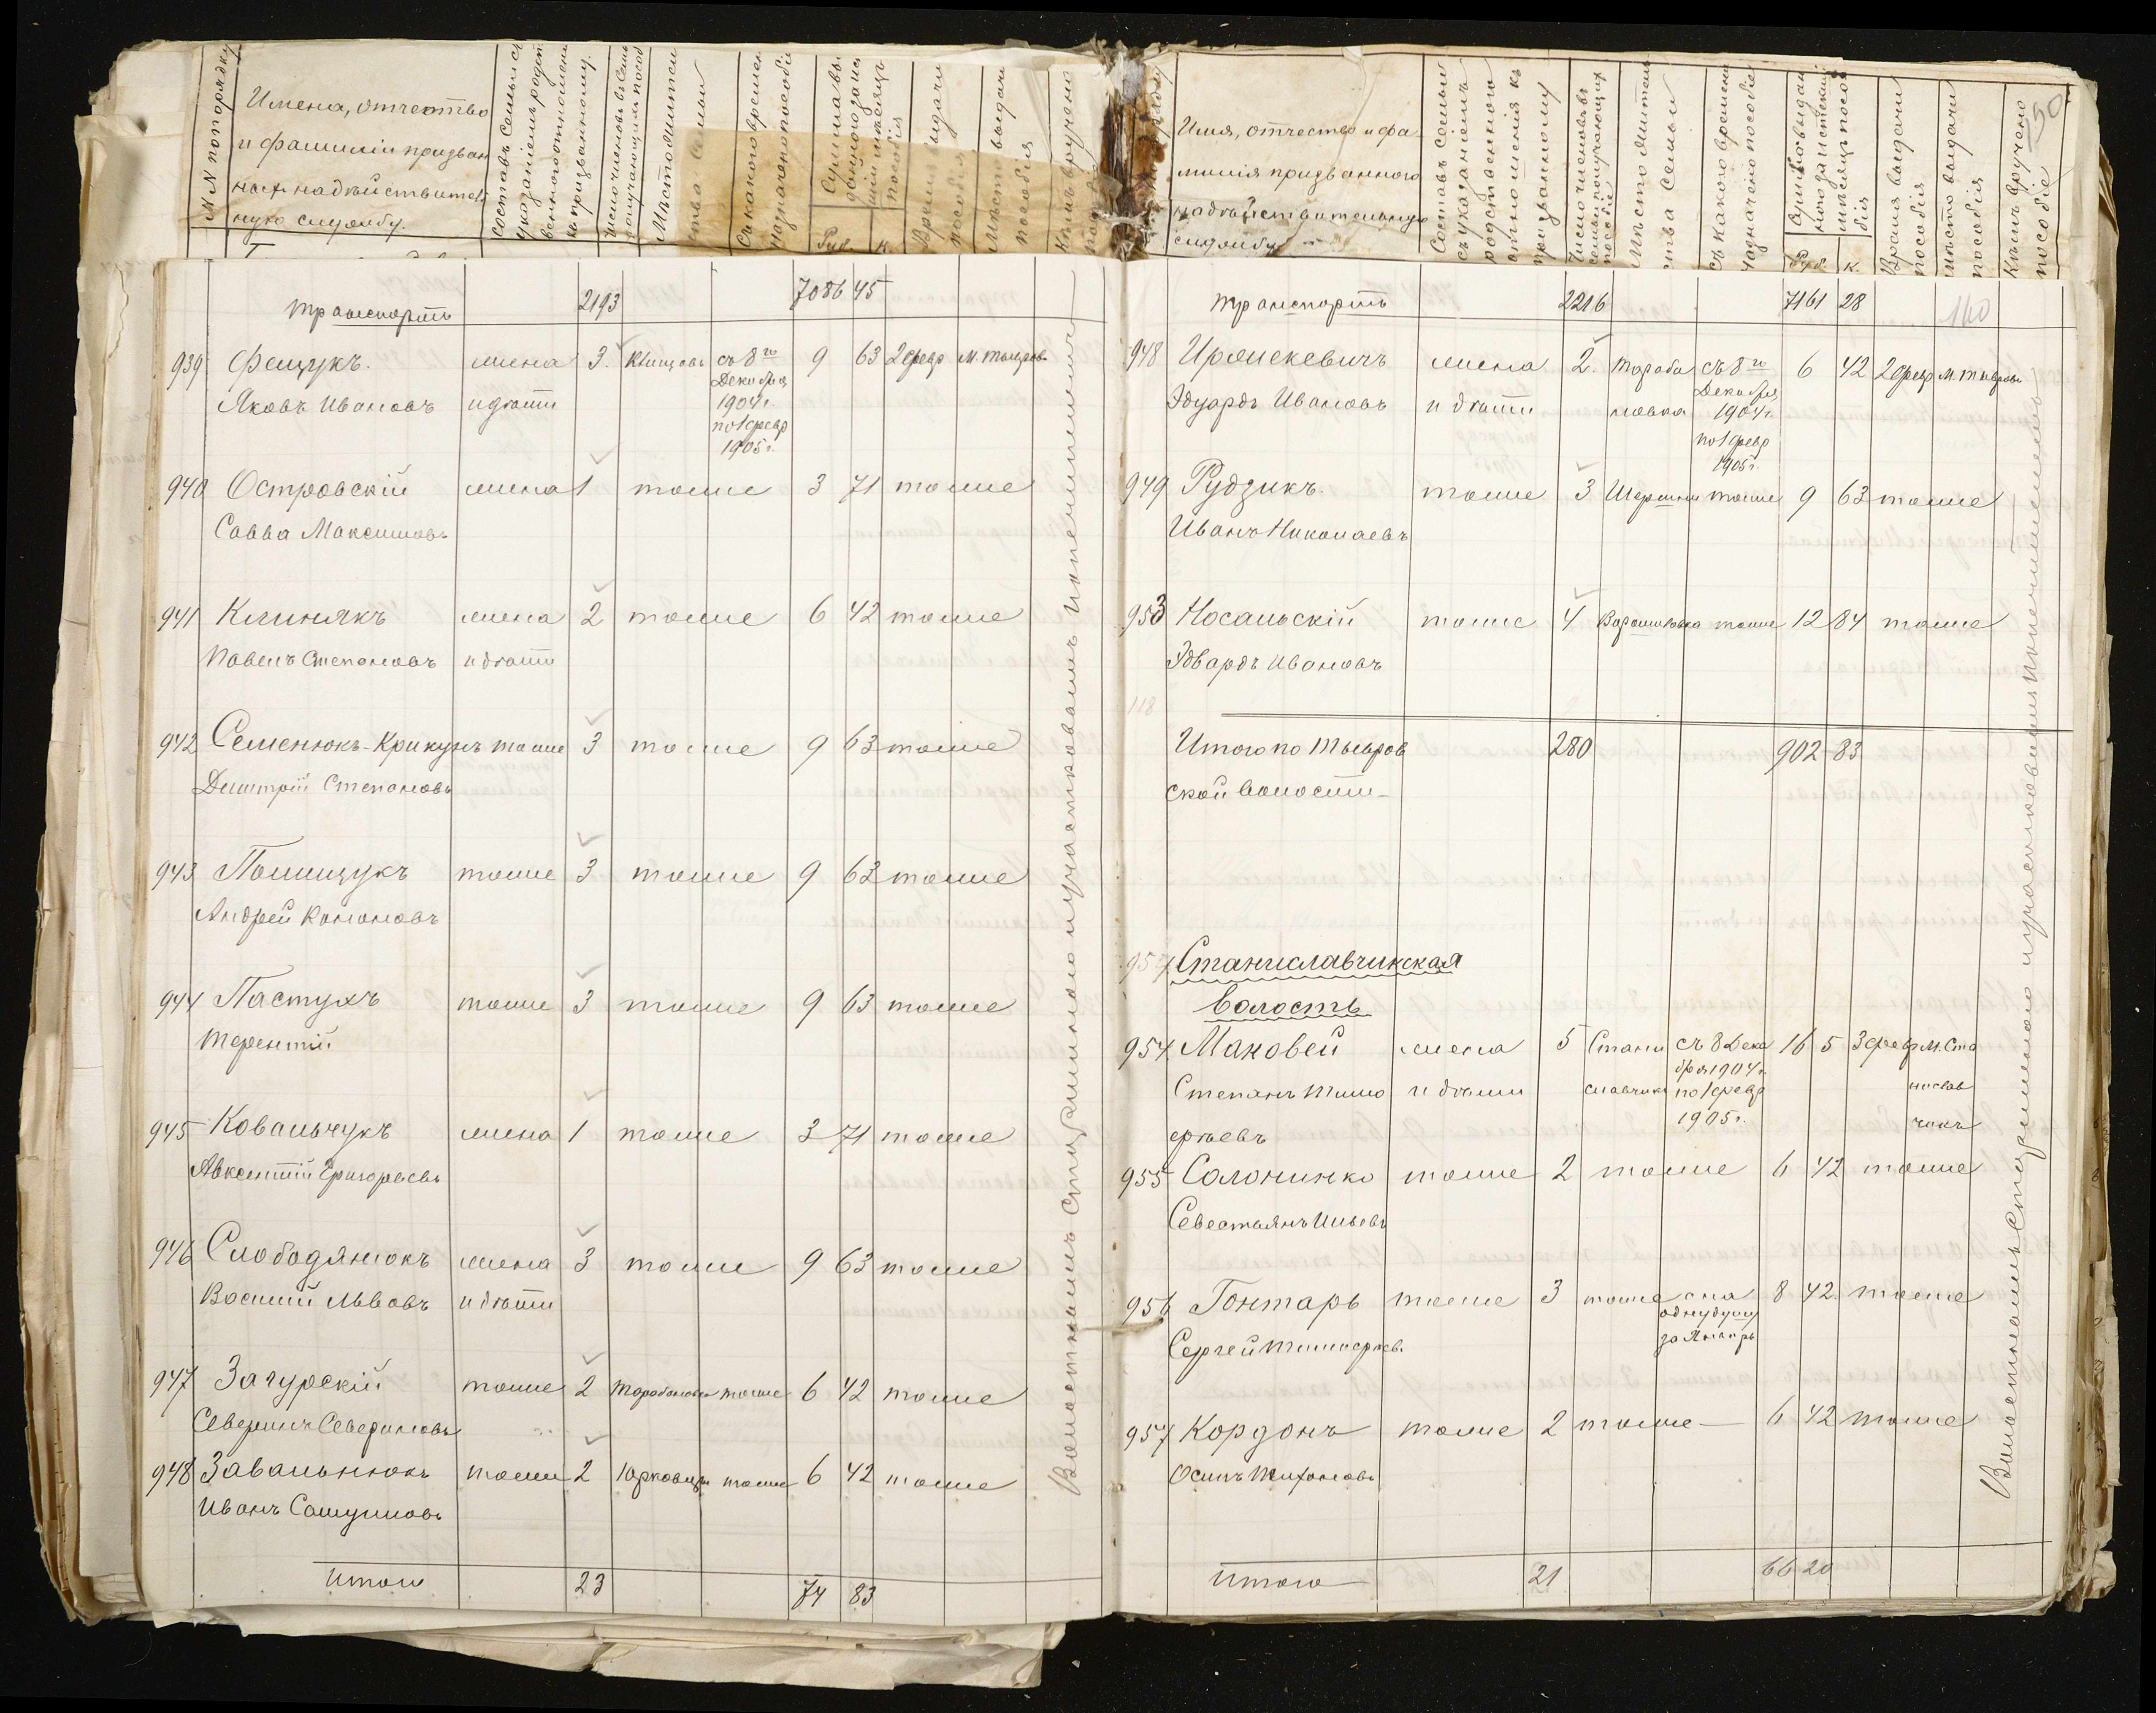 №№ по порядку
Имена, отчество и фамиліи призван ных на дѣйствитель ную службу.
Составъ семьи съ указаніемъ родст веннаго отношенія къ призванному.
Мѣсто жительства семьи
Съ какого времени назначено пособіе
Руб. К.
Время выдачи пособія
Мѣсто выдачи пособія
Кому вручено пособіе
транспортъ 2193 7086 45
939 Фещукъ. жена 3. Клищовъ съ 8го 9 63 2 февр М. Тывровъ
Яковъ Ивановъ и дѣти Декабря
1904 г.
по 1 февр
1905 г.
940 Островскій жена 1 тоже 3 71 тоже
Савва Максимовъ
941 Клинякъ жена 2 тоже 6 42 тоже
Павелъ Степановъ и дѣти
942 Семенюкъ-Крикунъ тоже 3 тоже 9 63 тоже
Дмитрій Степановъ
943 Полищукъ тоже 3 тоже 9 63 тоже
Андрей Кононовъ
944 Пастухъ тоже 3 тоже 9 63 тоже
Терентій
945 Ковальчукъ жена 1 тоже 3 71 тоже
Авксентій Григорьевъ
946 Слободянюкъ жена 3 тоже 9 63 тоже
Василій Львовъ и дѣти
947 Загурскій тоже 2 Тарабановка тоже 6 42 тоже
Северинъ Севериновъ
948 Завальнюкъ тоже 2 Юрковцы тоже 6 42 тоже
Иванъ Самуиловъ
Итого 23 74 83
Волостнымъ Старшиною и участковымъ Попечителемъ
Имя, отчество и фа
милія призваннаго
на дѣйствительную
службу
Составъ семьи съ указаніемъ родственнаго отношенія къ призванному
Число членовъ семьи получающихъ пособіе
Мѣсто житель ства семьи
Съ какого времени назначено пособіе
Руб. К.
Время выдачи пособія
Мѣсто выдачи пособія
Кому вручено пособіе
50
транспортъ 2216 7161 28 160
948 Иржискевичъ жена 2. Тараба съ 8го 6 42 2 февр М. Тывровъ
Эдуардъ Ивановъ и дѣти новка Декабря
1904 г.
по 1 февр
1905 г.
949 Рудзикъ. тоже 3 Шершни тоже 9 63 тоже
Иванъ Николаевъ
953 Носальскій тоже 4 Ворошиловка тоже 12 84 тоже
Эдвардъ Ивановъ
118
Итого по Тывров 280 902 83
ской волости
Станиславчикская
волость
954 Маковей жена 5 Стани съ 8 Дека 16 5 3 февр М. Ста
Степанъ Тимо и дѣти славчикъ бря 1904 г. по 1 февр нислав
феевъ 1905 г. чикъ
955 Солонинко тоже 2 тоже 6 42 тоже
Севестьянъ Ильевъ
956 Гонтарь тоже 3 тоже а на 8 42. тоже
одну душу
Сергей Тимофеевъ за Январь
957 Кордонъ тоже 2 тоже 6 42 тоже
Осипъ Тихоновъ
Итого 21 66 20
Волостнымъ Старшиною и участковымъ Попечителемъ